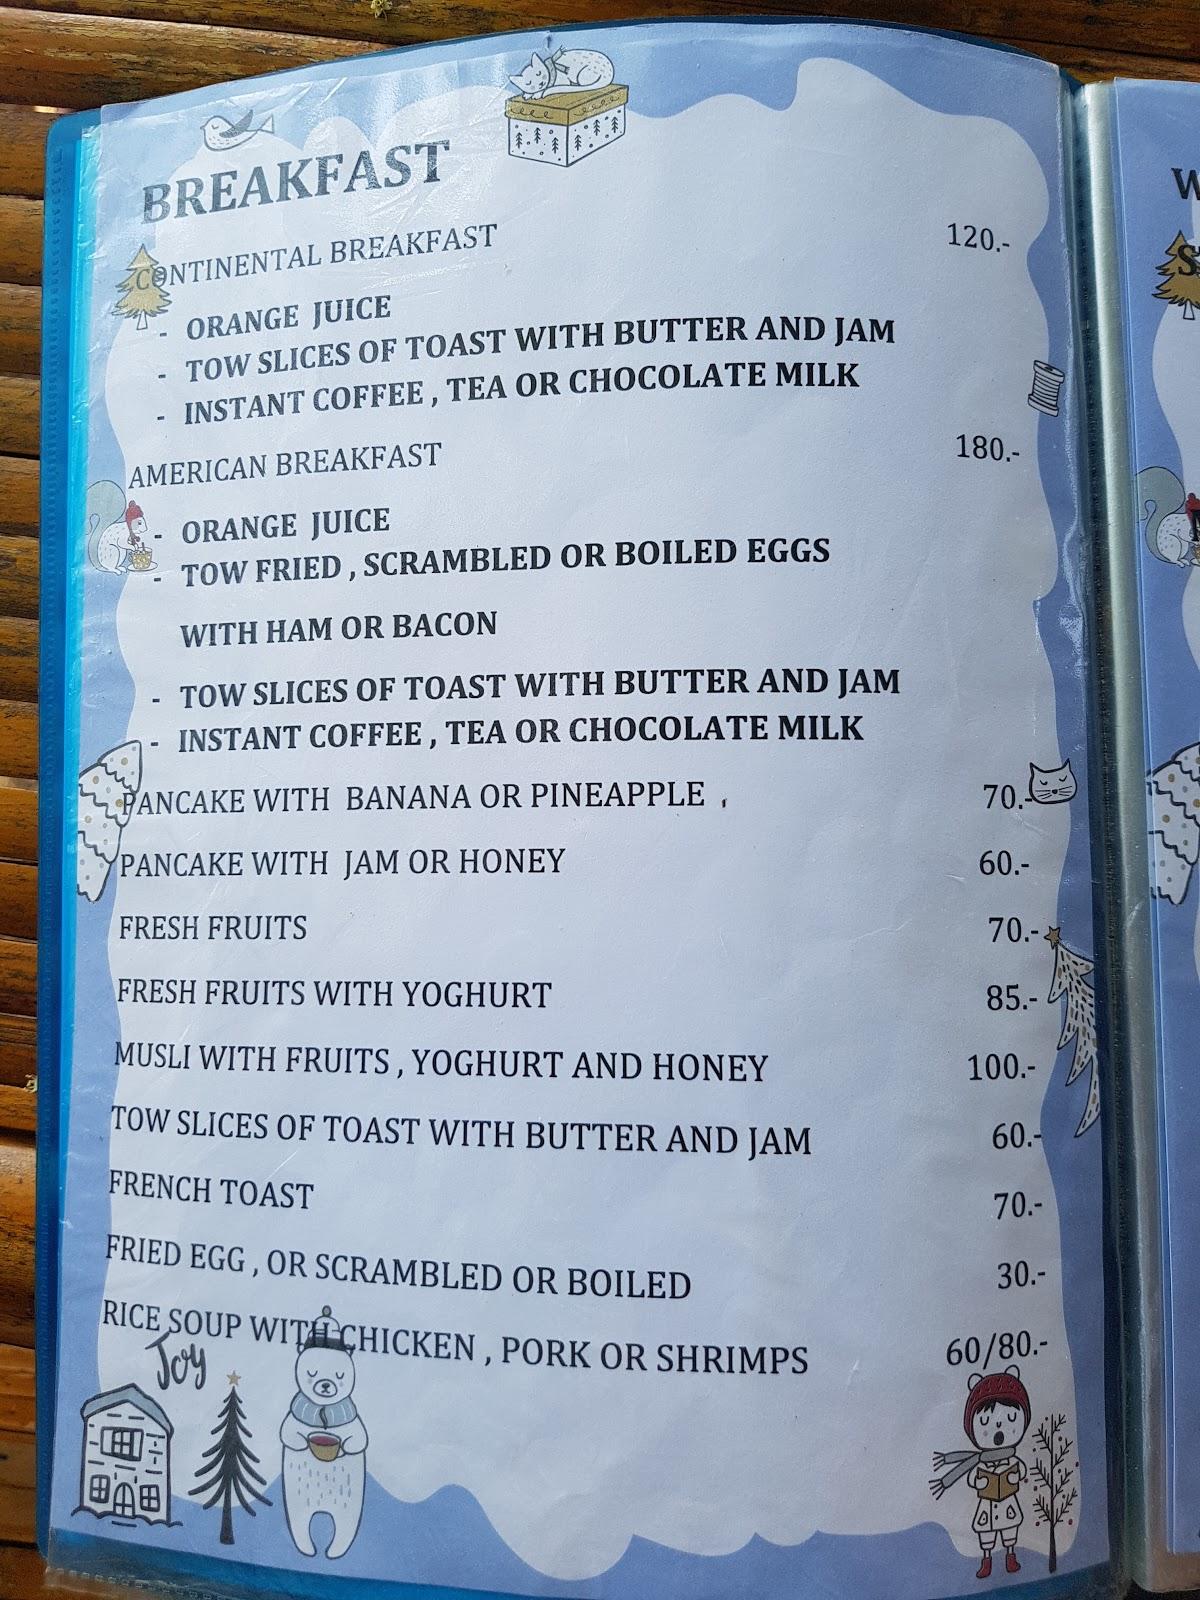 BREAKFAST
CONTINENTAL BREAKFAST 120.-
- ORANGE JUICE
- TOW SLICES OF TOAST WITH BUTTER AND JAM
- INSTANT COFFEE , TEA OR CHOCOLATE MILK
AMERICAN BREAKFAST 180.-
- ORANGE JUICE
- TOW FRIED , SCRAMBLED OR BOILED EGGS
WITH HAM OR BACON
- TOW SLICES OF TOAST WITH BUTTER AND JAM
- INSTANT COFFEE , TEA OR CHOCOLATE MILK
PANCAKE WITH BANANA OR PINEAPPLE , 70.-
PANCAKE WITH JAM OR HONEY 60.-
FRESH FRUITS 70.-
FRESH FRUITS WITH YOGHURT 85.-
MUSLI WITH FRUITS , YOGHURT AND HONEY 100.-
TOW SLICES OF TOAST WITH BUTTER AND JAM 60.-
FRENCH TOAST 70.-
FRIED EGG , OR SCRAMBLED OR BOILED 30.-
RICE SOUP WITH CHICKEN , PORK OR SHRIMPS 60/80.-
Joy